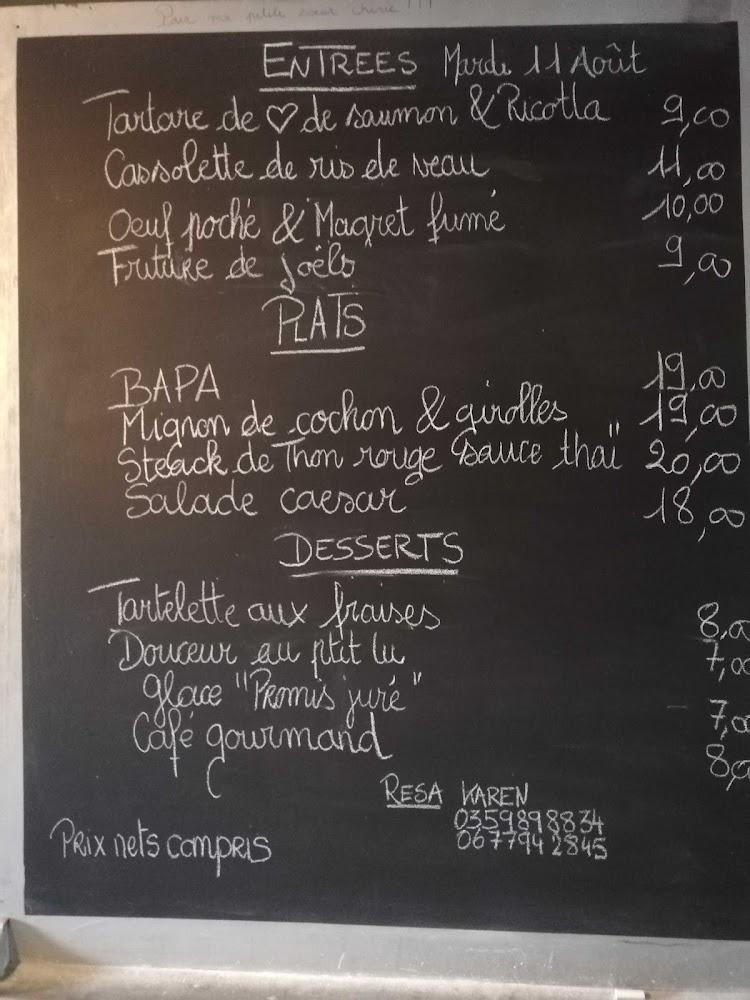 Pour ma petite sœur chérie !!!
ENTREES Mardi 11 Août
Tartare de ♡ de saumon & Ricotta 9,00
Cassolette de ris de veau 11,00
Oeuf poché & Magret fumé 10,00
Friture de joëls 9,00
PLATS
BAPA 19,00
Mignon de cochon & girolles 19,00
Steack de Thon rouge "sauce thaï" 20,00
Salade caesar 18,00
DESSERTS
Tartelette aux fraises 8,00
Douceur au ptit lu 7,00
glace "Promis juré" 7,00
Café gourmand 8,00
RESA KAREN
0359898834
0677942845
Prix nets compris